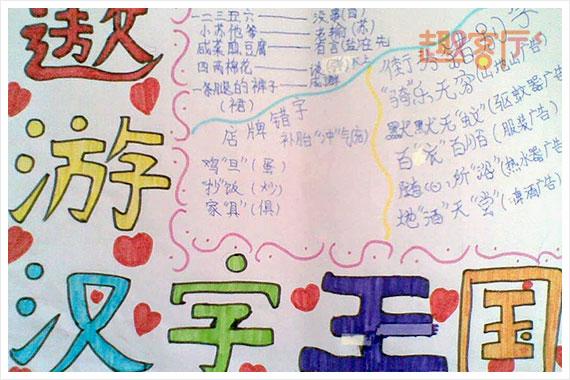 遨游汉字王国
一二三五六——没事(四)
小苏他爷——老输(苏)
咸菜煎豆腐——有言(盐)在先
四两棉花——谈
一条腿的裤子——
(裙)
店牌错字
补胎"冲"气(充)
鸡"旦"(蛋)
"抄"饭(炒)
家"具"(俱)
街
"骑"乐无穷(山地山广告)
默默无"蚊"(驱蚊器广告)
百"衣"百顺(服装广告)
随心所"浴"(热水器广告)
地"酒"天"堂"(啤酒广告)
趣客厅